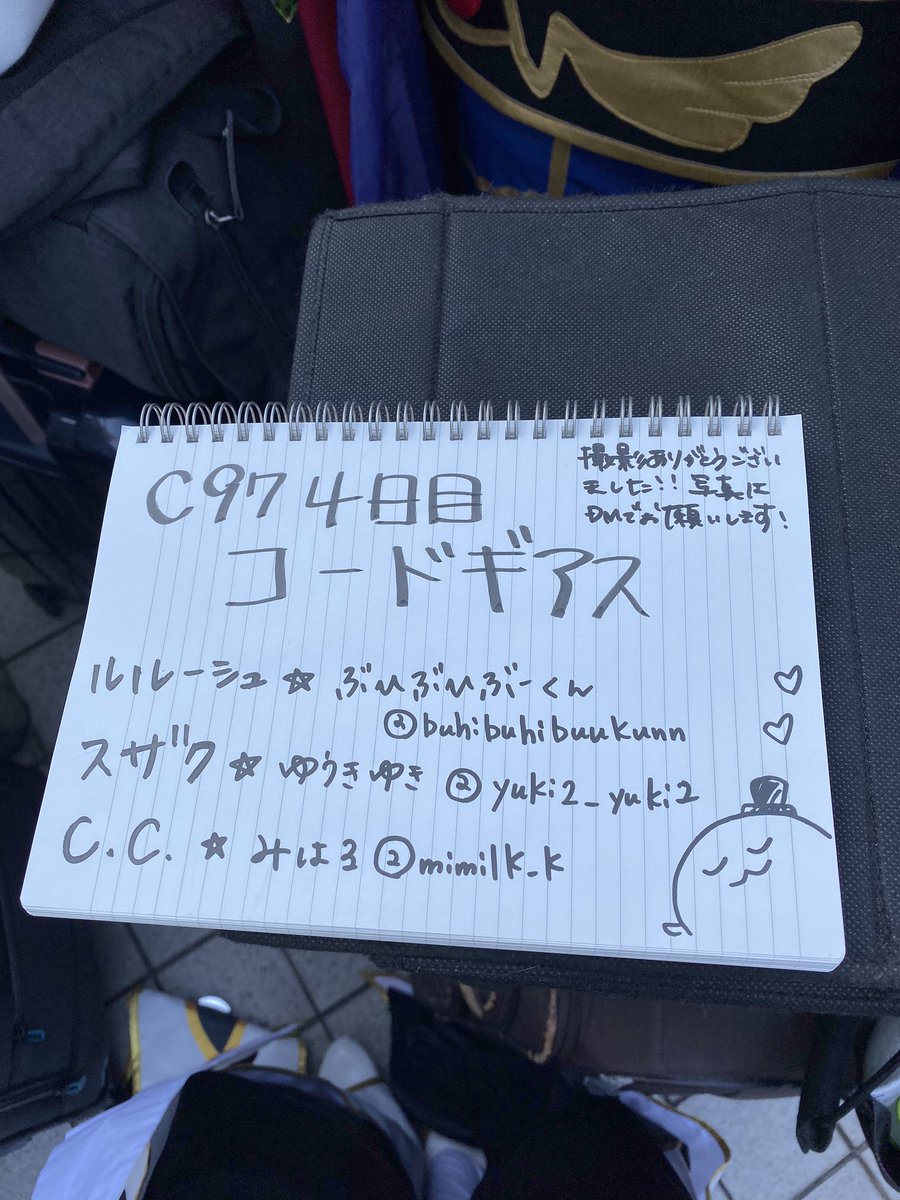 C97 4日目
コードギアス
撮影ありがとうござい
ました!! 写真は
DMでお願いします!
ルルーシュ☆ぶひぶひぶーくん
@buhibuhibuukunn
スザク☆ゆうきゆき @yuki2_yuki2
C.C.☆みはる@mimilk_k